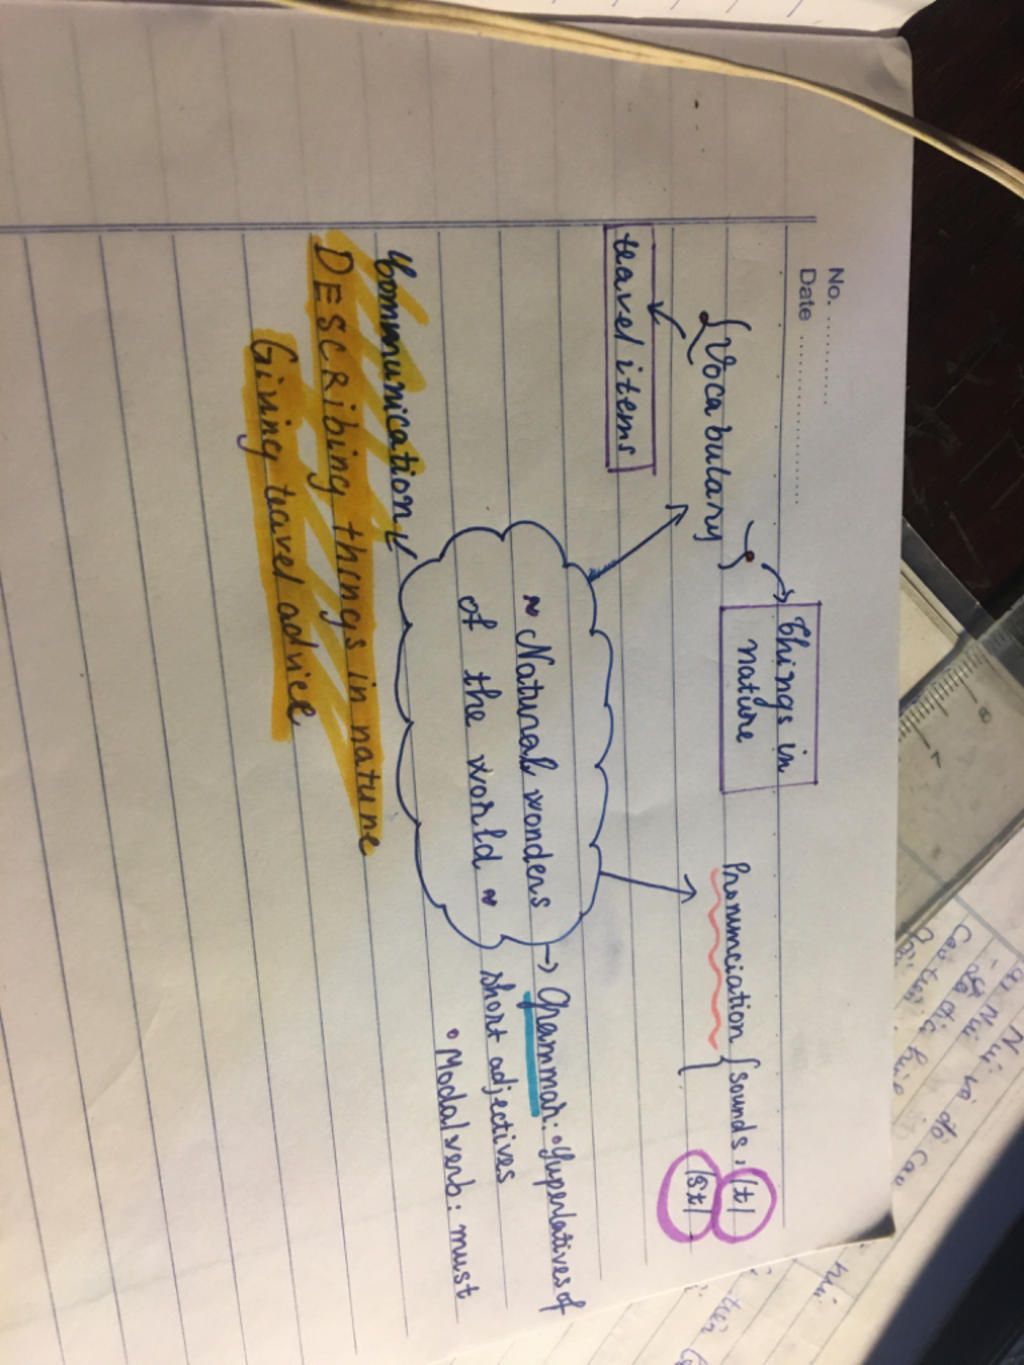 No. ............
Date ..................
Things in
nature
Vocabulary
travel items
Pronunciation { sounds, /t/
/st/
~ Natural wonders
of the world ~
→ Grammar: • Superlatives of
short adjectives
• Modal verb: must
Communication
DESCRibing things in nature
Giving travel advice
8
7